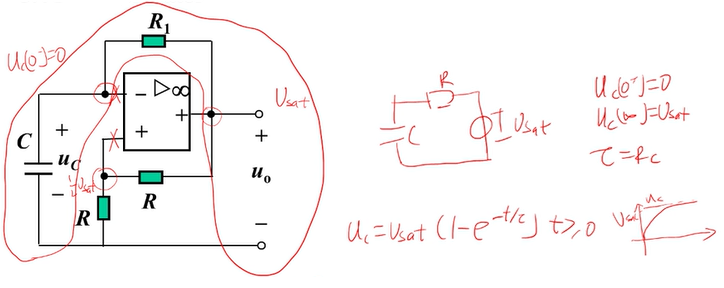 R₁
Uc(0⁻)=0
− ▷∞
+
+
Usat
C
+
uc
−
½Usat
R
R
+
uo
−
R
C
Usat
Uc(0⁻)=0
Uc(∞)=Usat
τ=Rc
Uc=Usat (1-e^(-t/τ)) t≥0
Usat
uc